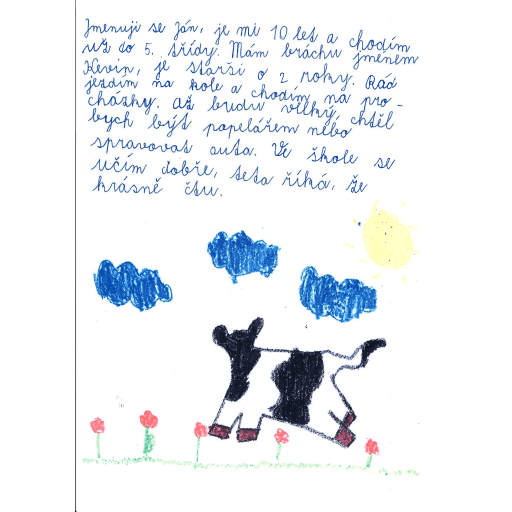 Jmenuji se Ján, je mi 10 let a chodím
už do 5. třídy. Mám bráchu jménem
Kevin, je starší o 2 roky. Rád
jezdím na kole a chodím na pro-
cházky. Až budu velký, chtěl
bych být popelářem nebo
spravovat auta. Ve škole se
učím dobře, teta říká, že
krásně čtu.